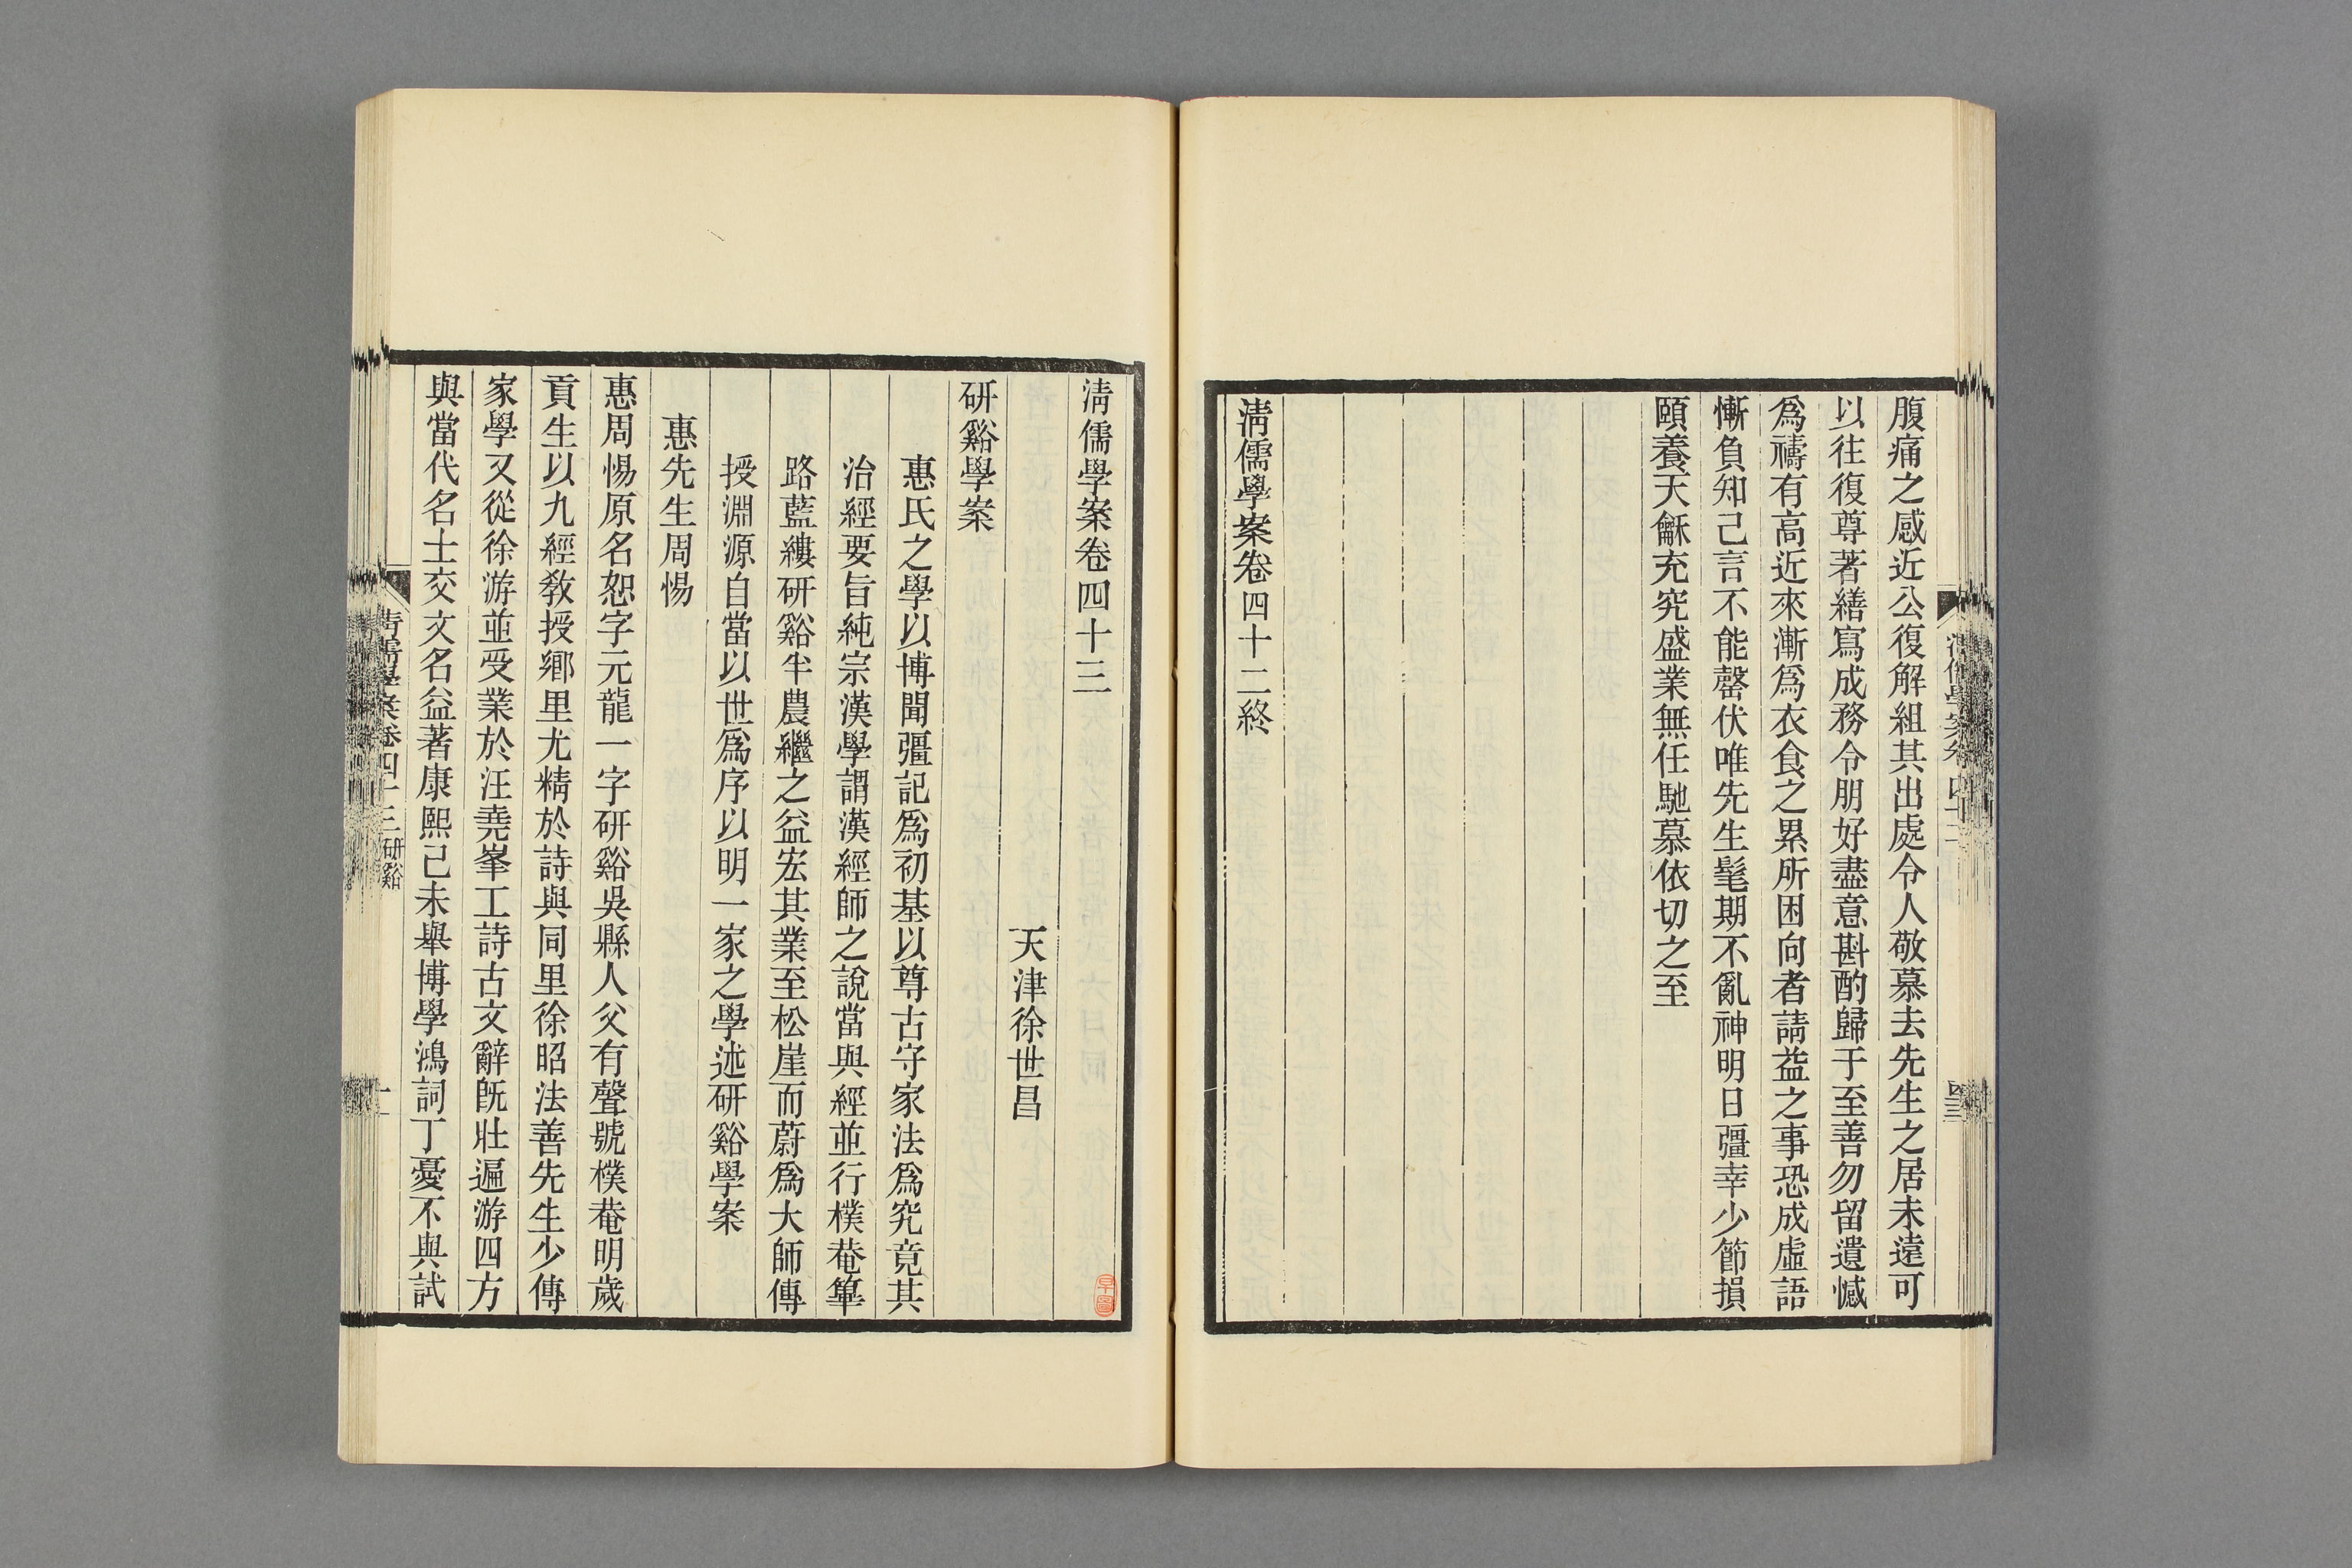 腹痛之感近公復解組其出處令人敬慕去先生之居未遠可
以往復尊著繕寫成務令朋好盡意斟酌歸于至善勿留遺憾
爲禱有高近來漸爲衣食之累所困向者請益之事恐成虛語
慚負知己言不能罄伏唯先生髦期不亂神明日彊幸少節損
頤養天龢充究盛業無任馳慕依切之至
清儒學案卷四十二終
清儒學案卷四十三
天津徐世昌
研谿學案
惠氏之學以博聞彊記爲初基以尊古守家法爲究竟其
治經要旨純宗漢學謂漢經師之說當與經並行樸菴篳
路藍縷研谿半農繼之益宏其業至松崖而蔚爲大師傳
授淵源自當以世爲序以明一家之學述研谿學案
惠先生周惕
惠周惕原名恕字元龍一字研谿吳縣人父有聲號樸菴明歲
貢生以九經教授鄉里尤精於詩與同里徐昭法善先生少傳
家學又從徐游並受業於汪堯峯工詩古文辭旣壯遍游四方
與當代名士交文名益著康熙己未舉博學鴻詞丁憂不與試
清儒學案卷四十三 研谿
一